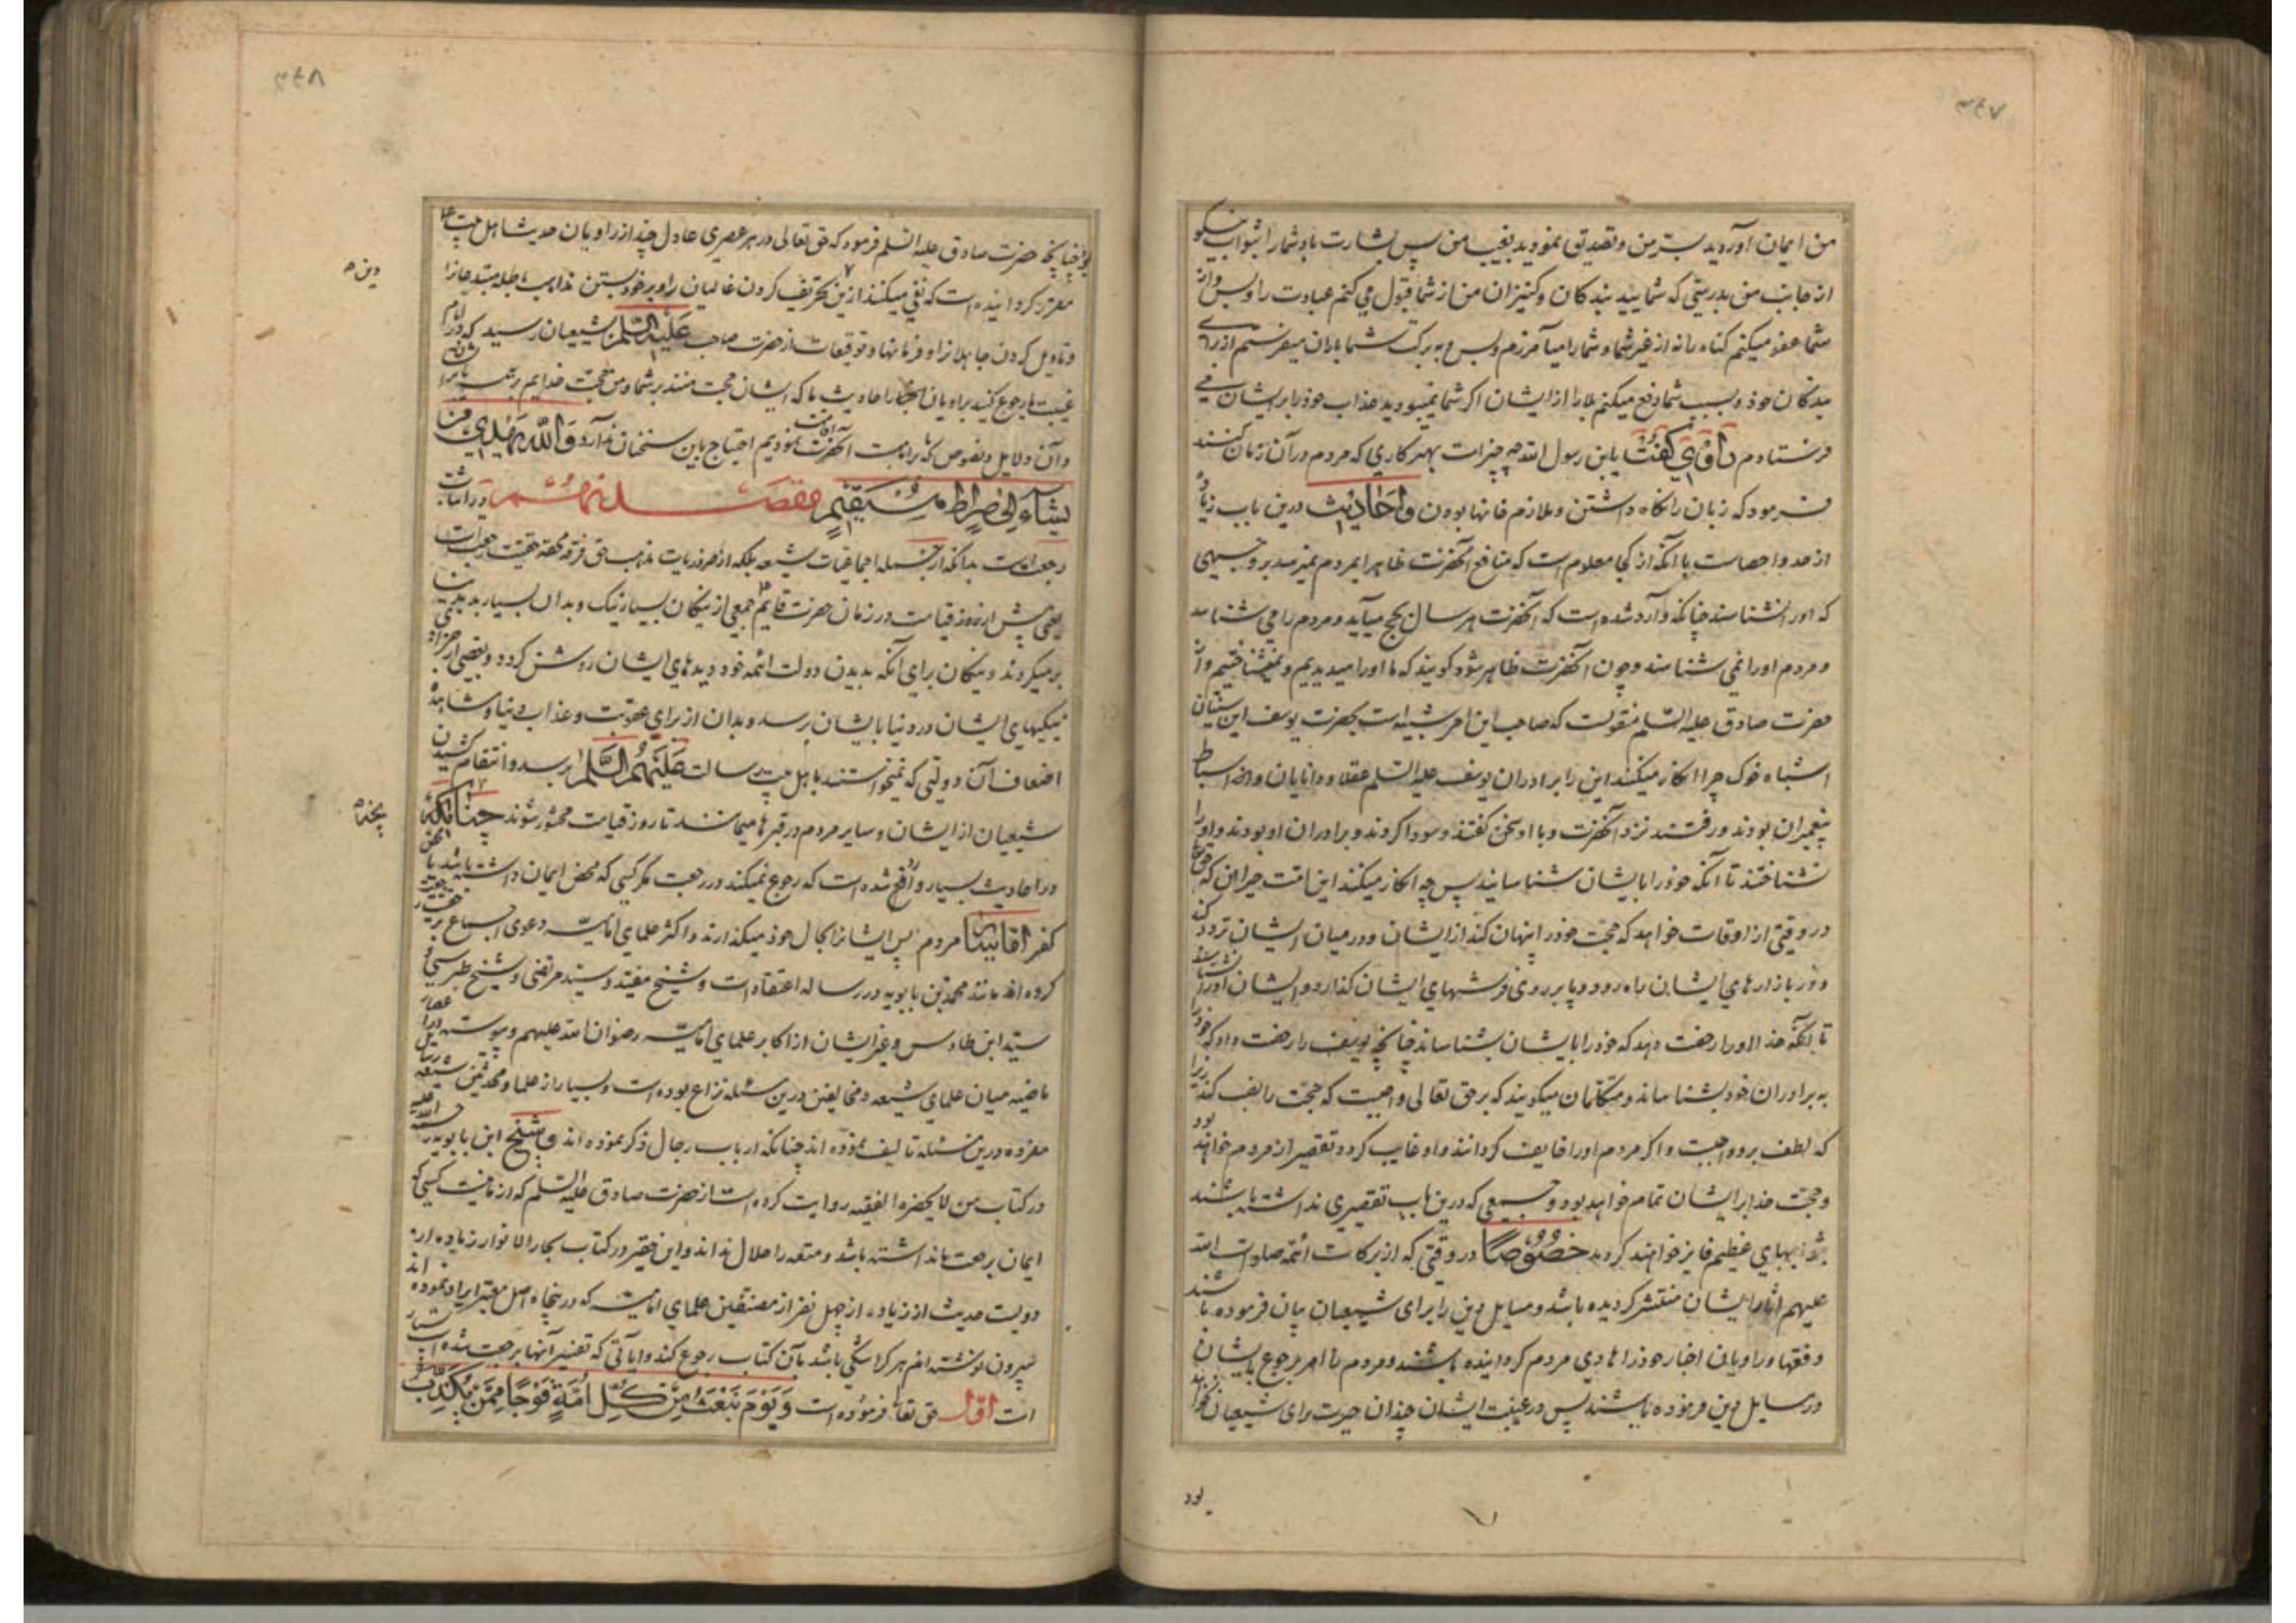 ۳۴۷
من ایمان آوردید بسرّ من و تصدیق نمودید بغیب من پس بشارت باد شما را بثواب نیکو
از جانب من بدرستی که شمایید بندگان و کنیزان من از شما قبول می کنم عبادت را و بس و از
شما عفو میکنم گناه را نه از غیر شما و شما را میآمرزم و بس و به برکت شما باران میفرستم از برای
بندگان خود و بسبب شما دفع میکنم بلا را از ایشان اگر شما نمیبودید عذاب خود را بر ایشان می
فرستادم راوی گفت یابن رسول الله چه چیز است بهتر کاری که مردم در آن زمان کنند
فرمود که زبان را نگاه داشتن و ملازم خانها بودن و احادیث درین باب زیاده
از حد و احصاست با آنکه از کجا معلوم است که منافع آنحضرت ظاهرا بمردم نمیرسد بر وجهی
که او را نشناسند چنانکه وارد شده است که آنحضرت هر سال بحج میآید و مردم را می شناسد
و مردم او را نمی شناسند و چون آنحضرت ظاهر شود گویند که ما او را میدیدیم و نمیشناختیم و از
حضرت صادق علیه السّلم منقولست که صاحب این امر شبیه است بحضرت یوسف این سنیان
اشباه خوک چرا انکار میکنند این را برادران یوسف علیه السلم عقلا و دانایان و اسباط
پیغمبران بودند و رفتند نزد آنحضرت و با او سخن گفتند و سودا کردند و برادران او بودند و او را
نشناختند تا آنکه خود را بایشان شناسانید پس چه انکار میکنند این امّت حیران که حق تعالی
در وقتی از اوقات خواهد که حجّت خود را پنهان کند از ایشان و در میان ایشان تردد کند
و در بازارهای ایشان راه رود و پا بر روی فرشهای ایشان گذارد و ایشان او را نشناسند
تا آنکه خدا او را رخصت دهد که خود را بایشان بشناساند چنانچه یوسف را رخصت داد که خود را
به برادران خود بشناساند و متکلمان میگویند که بر حق تعالی واجبست که حجّت را نصب کند زیرا
که لطف برو واجبست و اگر مردم او را خایف گردانند و او غایب گردد تقصیر از مردم خواهد بود
و حجّت خدا بر ایشان تمام خواهد بود و جمعی که درین باب تقصیری نداشته باشند
بثوابهای عظیم فایز خواهند گردید خصوصاً در وقتی که از برکات ائمّه صلوات الله
علیهم آثار ایشان منتشر گردیده باشد و مسایل دین را برای شیعیان بیان فرموده باشند
و فقها و راویان اخبار خود را هادی مردم گردانیده باشند و مردم را امر برجوع بایشان
در مسایل دین فرموده باشند پس در غیبت ایشان چندان حیرت برای شیعیان نخواهد
بود
۳۴۸
بود چنانچه حضرت صادق علیه السّلم فرمود که حق تعالی در هر عصری عادلی چند از راویان حدیث اهل بیت ما
مقرر گردانیده است که نفی میکنند از دین تحریف کردن غالیان را و بر خود بستن مذاهب باطله مبتدعان را
و تاویل کردن جاهلان را و فرمانها و توقیعات از حضرت صاحب علیه السّلم بشیعیان رسید که در ایام
غیبت ما رجوع کنید براویان احادیث ما که ایشان حجت منند بر شما و من حجّت خدایم بر همه
و آن دلایل و نصوص که بر امامت آنحضرت اقامت نمودیم احتیاج باین سخنان ندارد وَاللّهُ یَهْدِی مَن
یَشَآءُ اِلیٰ صِرَاطٍ مُسْتَقِیم مقصد نهم در اثبات
رجعت است بدانکه از جمله اجماعیات شیعه بلکه از ضروریات مذهب حق فرقه محقّه حقیّت رجعت است
یعنی پیش از روز قیامت در زمان حضرت قایم جمعی از نیکان بسیار نیک و بدان بسیار بد بدنیا
برمیگردند و نیکان برای آنکه بدیدن دولت ائمه خود دیدهای ایشان روشن گردد و بعضی از جزای
نیکیهای ایشان در دنیا بایشان برسد و بدان از برای عقوبت و عذاب دنیا و مشاهده
اضعاف آن دولتی که نمیخواستند باهل بیت رسالت عَلَیْهِمُ السَّلَمُ برسد و انتقام کشیدن
شیعیان از ایشان و سایر مردم در قبرها میمانند تا روز قیامت محشور شوند چنانکه
در احادیث بسیار واقع شده است که رجوع نمیکند در رجعت مگر کسی که محض ایمان داشته باشد یا محض
کفر امّا سایر مردم پس ایشانرا بحال خود میگذارند و اکثر علمای امامیّه دعوی اجماع بر حقیّت رجعت
کرده اند مانند محمد بن بابویه در رساله اعتقادات و شیخ مفید و سید مرتضی و شیخ طبرسی و
سید ابن طاوس و غیر ایشان از اکابر علمای امامیّه رضوان الله علیهم و پیوسته در اعصار
ماضیه میان علمای شیعه و مخالفین درین مسئله نزاع بوده است و بسیار از علما و محدثین شیعه رسایل
مفرده درین مسئله تالیف نموده اند چنانکه ارباب رجال ذکر نموده اند و شیخ ابن بابویه رحمة الله علیه
در کتاب من لا یحضره الفقیه روایت کرده است از حضرت صادق علیه السّلم که از ما نیست کسی که
ایمان برجعت ما نداشته باشد و متعه را حلال نداند و این حقیر در کتاب بحار الانوار زیاده از
دویست حدیث از زیاده از چهل نفر از مصنّفین علمای امامیّه که در پنجاه اصل معتبر ایراد نموده اند
بیرون نوشته ام هر کرا شکی باشد بآن کتاب رجوع کند و آیاتی که تفسیر آنها برجعت شده بسیار
است اوّل حق تعالی فرموده است وَ یَوْمَ نَبْعَثُ مِن کُلِّ اُمَّةٍ فَوْجًا مِمَّن یُکَذِّبُ